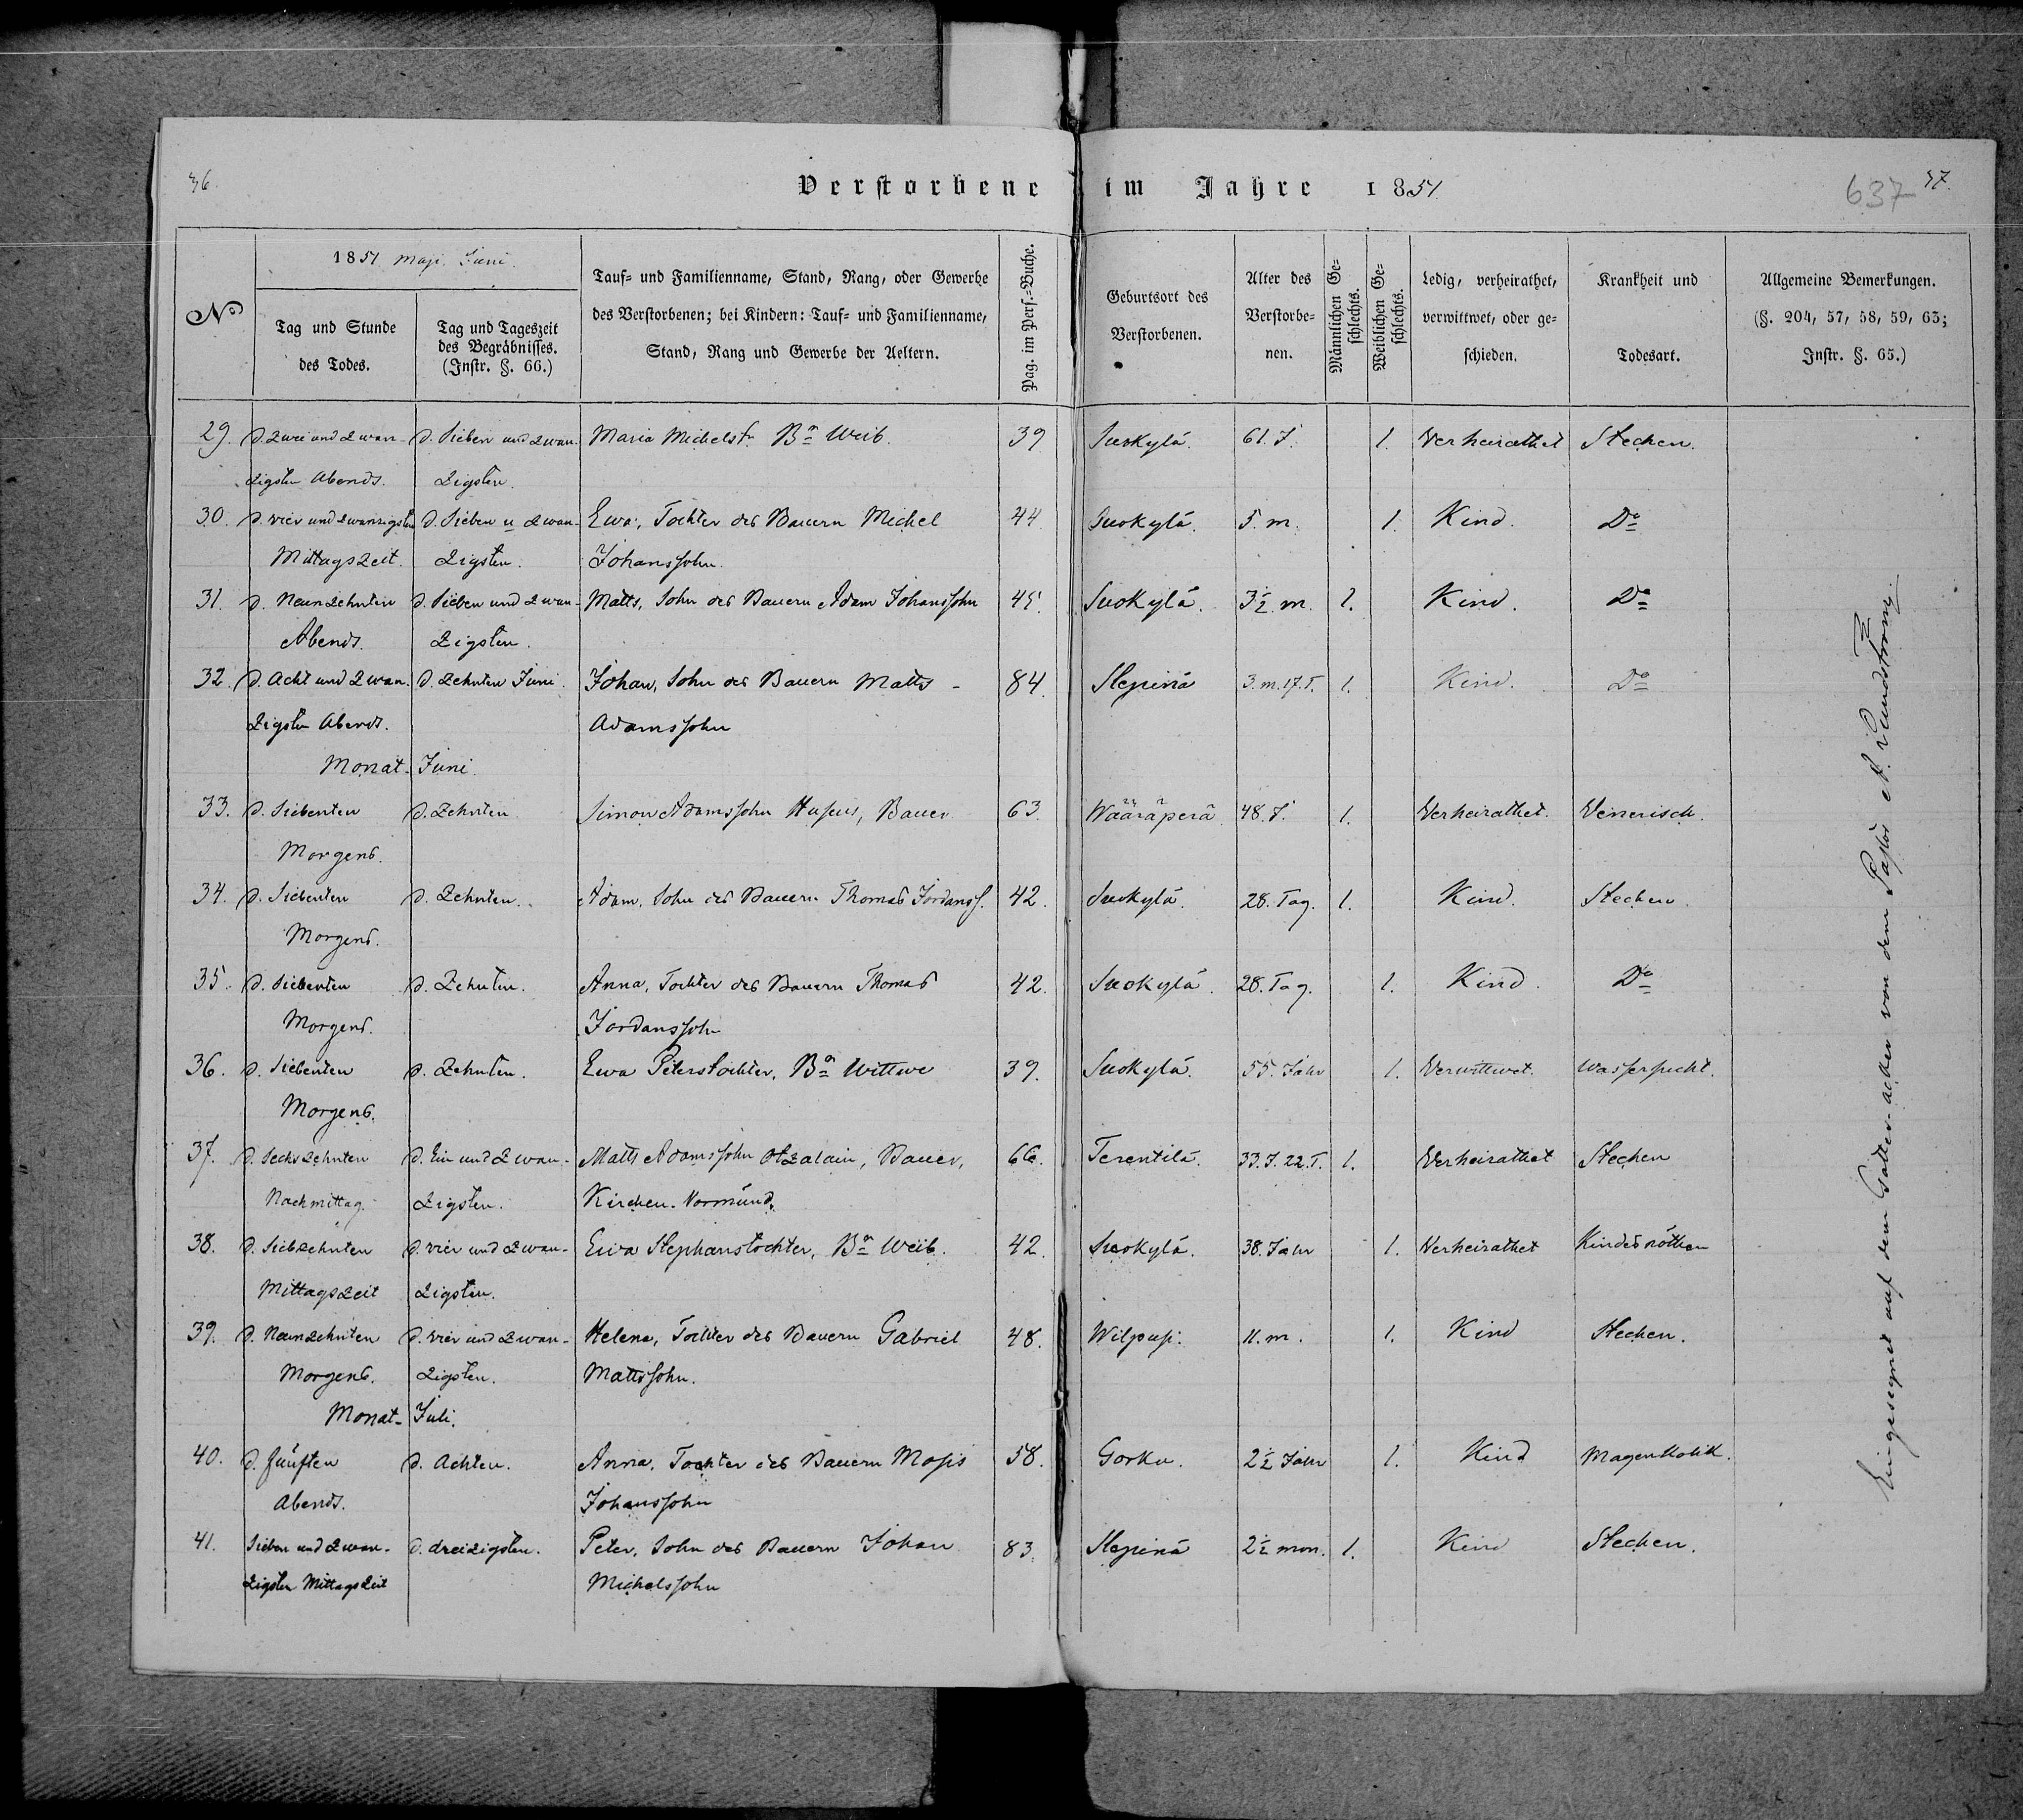 36.
Verstorbene im Jahre 1851.
637 37.
No
1851 Maji. Juni.
Tag und Stunde des Todes.
Tag und Tageszeit des Begräbnisses. (Instr. §. 66.)
Tauf- und Familienname, Stand, Rang, oder Gewerbe des Verstorbenen; bei Kindern: Tauf- und Familienname, Stand, Rang und Gewerbe der Aeltern.
Pag. im Pers.-Buche.
Geburtsort des Verstorbenen.
Alter des Verstorbe- nen.
Männlichen Ge- schlechts.
Weiblichen Ge- schlechts.
Ledig, verheirathet, verwittwet, oder ge- schieden.
Krankheit und Todesart.
Allgemeine Bemerkungen. (§. 204, 57, 58, 59, 63; Instr. §. 65.)
29. d. zwei und zwan- d. Sieben und zwan- Maria Michelst. Bn Weib. 39 Suokylä. 61. J. 1. Verheirathet Stechen.
zigsten Abends. zigsten.
30. d. vier und zwanzigsten d. Sieben u zwan- Ewa, Tochter des Bauern Michel 44 Suokylä. 5. m. 1. Kind. Do
Mittagszeit. zigsten. Johanssohn.
31. d. Neunzehnten d. Sieben und zwan- Matts, Sohn des Bauern Adam Johanssohn 45. Suokylä. 3½ m. 1. Kind. Do
Abends. zigsten.
32. d. Acht und zwan- d. zehnten Juni. Johan, Sohn des Bauern Matts - 84. Slepinä 3. m. 17. T. 1. Kind. Do
zigsten Abends. Adamssohn
Monat- Juni.
33. d. Siebenten d. Zehnten Simon Adamssohn Bauer. 63. Wääräperä. 48. J. 1. Verheirathet. Venerisch.
Morgens.
34. d. Siebenten d. Zehnten. Adam, Sohn des Bauern Thomas Jordanss. 42. Suokylä. 28. Tag. 1. Kind. Stechen.
Morgens.
35. d. Siebenten d. Zehnten. Anna, Tochter des Bauern Thomas 42. Suokylä. 28. Tag. 1. Kind. Do
Morgens. Jordanssohn
36. d. Siebenten d. Zehnten. Ewa Peterstochter, Bn Wittwe 39. Suokylä. 55. Jahr 1. Verwittwet. Wassersucht.
Morgens.
37. d. Sechszehnten d. Ein und zwan- Matts Adamssohn Bauer, 66. Terentilä. 33. J. 22. T. 1. Verheirathet Stechen
Nachmittag. zigsten. Kirchen-Vormünd.
38. d. Siebzehnten d. vier und zwan- Ewa Stephanstochter, Bn Weib. 42. Suokylä. 38. Jahr 1. Verheirathet Kindesnöthen
Mittagszeit zigsten.
39. d. Neunzehnten d. vier und zwan- Helena, Tochter des Bauern Gabriel 48. Wilpusi. 11. m. 1. Kind Stechen.
Morgens. zigsten. Mattssohn.
Monat- Juli.
40. d. fünften d. Achten. Anna, Tochter des Bauern Mosis 58. Gorka. 2½ Jahr 1. Kind Magenkolik.
Abends. Johanssohn
41. Sieben und zwan- d. dreizigsten. Peter, Sohn des Bauern Johan 83. Slepinä 2½ mon. 1. Kind Stechen.
zigsten Mittagszeit Michelssohn
Eingesegnet auf dem Gottes-acker von dem Pastor A. Lundström